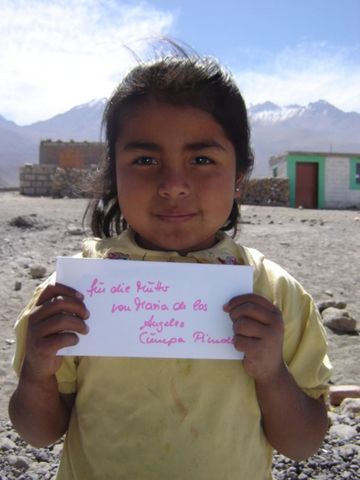 für die Mutter
von Maria de los
Angeles
Cumpa